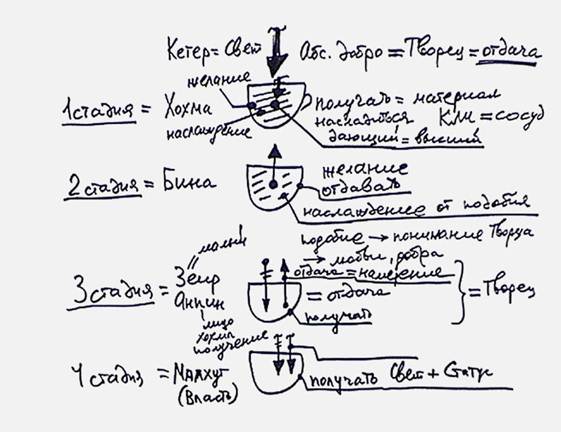 Кетер = Свет   Абс. добро = Творец = отдача
желание
1 стадия = Хохма   получать = материал
насладиться   Кли = сосуд
наслаждение   дающий = высший
2 стадия = Бина   желание
отдавать
наслаждение от подобия
подобие → понимание Творца
малый   → любви, добра
Зеир   отдача = намерение
3 стадия =   = отдача   = Творец
Анпин   получать
лицо
хохма
получение
4 стадия = Малхут   получать Свет + Статус
(Власть)